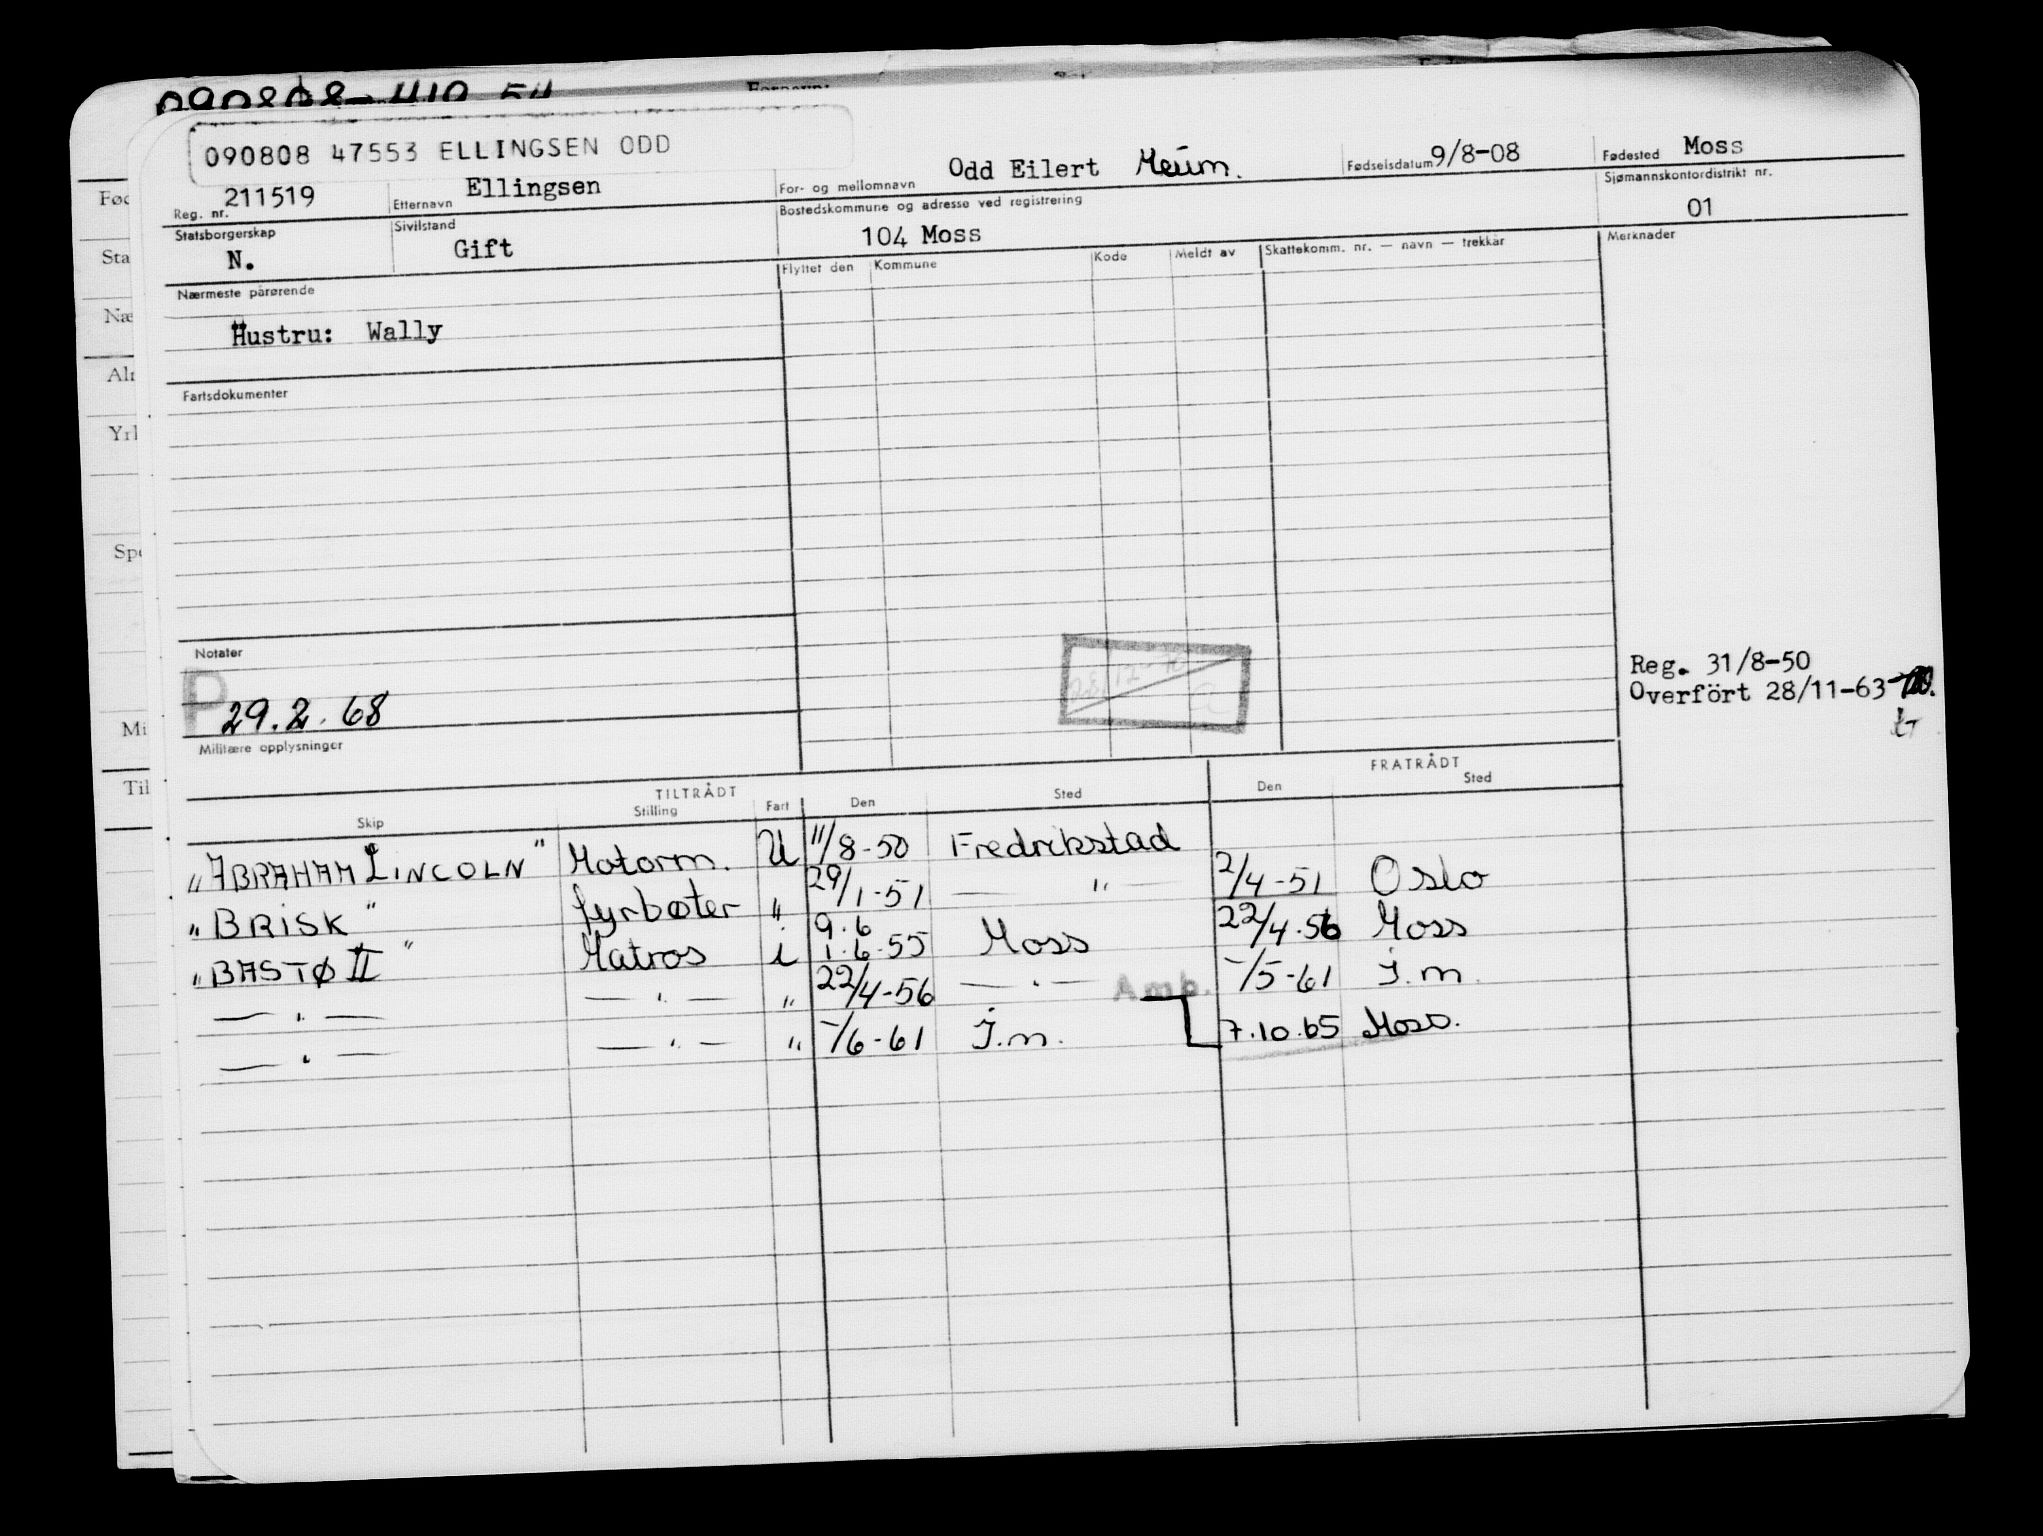 090808 47553 ELLINGSEN ODD
Reg. nr. 211519 Etternavn Ellingsen For- og mellomnavn Odd Eilert Fødselsdatum 9/8-08 Fødested Moss
Statsborgerskap N. Sivilstand Gift Bostedskommune og adresse ved registrering 104 Moss Sjømannskontordistrikt nr. 01
Nærmeste pårørende Flyttet den Kommune Kode Meldt av Skattekomm. nr. — navn — trekkår Merknader
Hustru: Wally
Fartsdokumenter
Notater
P 29.2.68
Reg. 31/8-50
Overfört 28/11-63
Militære opplysninger
TILTRÅDT FRATRÅDT
Skip Stilling Fart Den Sted Den Sted
"ABRAHAM LINCOLN" Motorm. U 11/8-50 Fredrikstad
"BRISK" fyrbøter " 29/1-51 — " — 2/4-51 Oslo
"BASTØ II" Matros i 9.6 1.6-55 Moss 22/4-56 Moss
— " — — " — " 22/4-56 — " — Amb. -/5-61 I.m.
— " — — " — " -/6-61 I.m. 7.10.65 Moss.
Fød
Sta
Næ
Alm
Yrk
Spe
Mi
Til